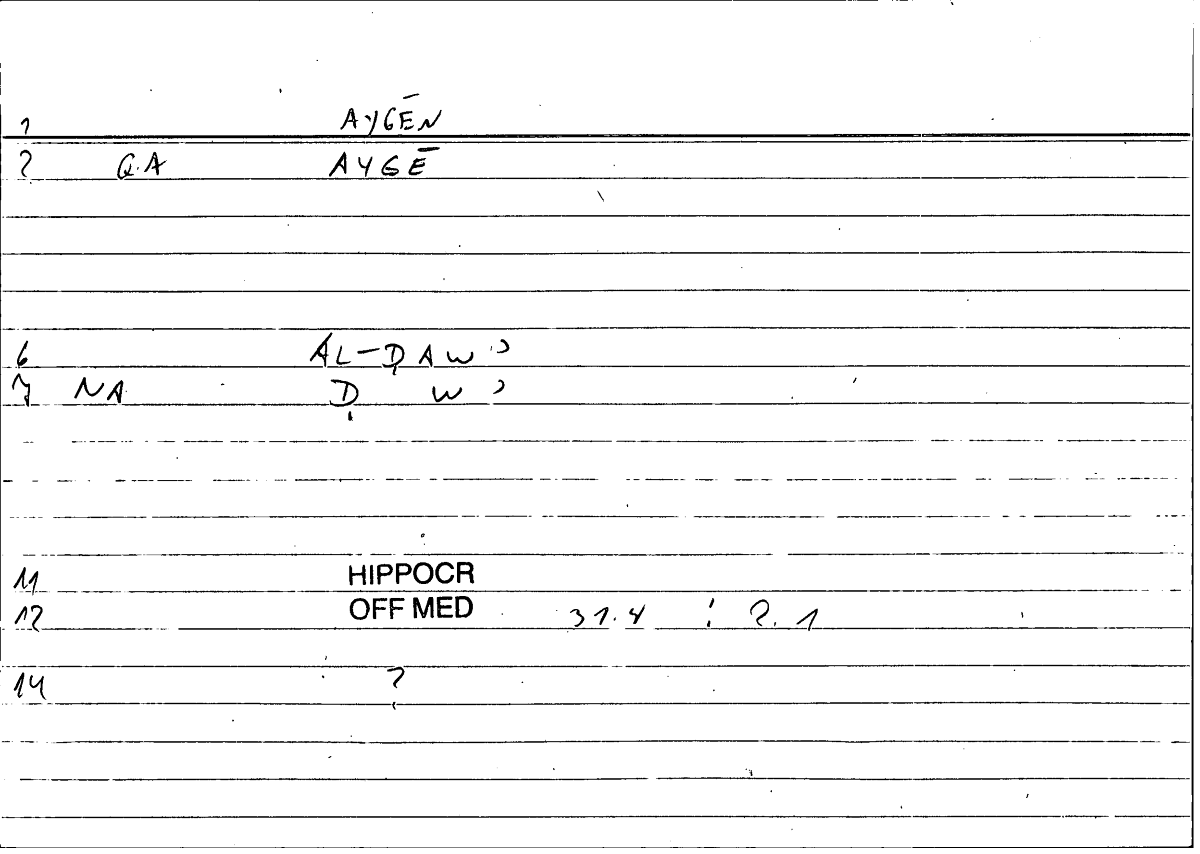 1 AYGĒN
2 QA AYGĒ
6 AL-ḌAWʾ
7 NA Ḍ W ʾ
11 HIPPOCR
12 OFF MED 31.4 : 2.1
14 ?